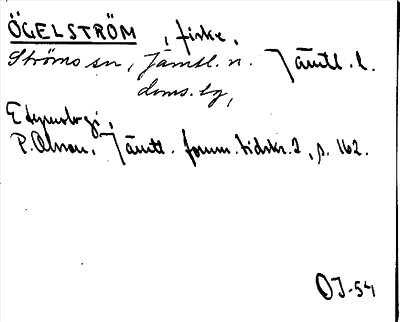 ÖGELSTRÖM, fiske.
Ströms sn, Jämtl. n. Jämtl. l.
doms.by,
Etymologi,
P. Olsson, Jämtl. fornm.tidskr. 2, s. 162.
OJ-54